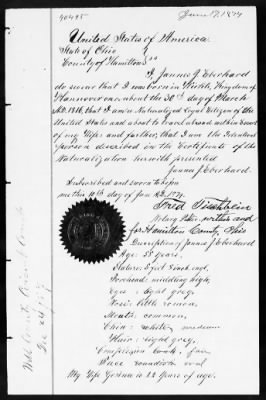 40495
June 17, 1874
United States of America
State of Ohio
County of Hamilton
I, Jannis J. Eberhard
do swear that I was born in Kingdom of
Hannover on or about the 30th day of March
A.D. 1816, that I am a Naturalized Legal Citizen of the
United States and about to travel abroad in
of my Wife and further, that I am the Identical
person described in the Certificate of the
Naturalization herewith presented
Jannis J. Eberhard
Subscribed and sworn to before
me this day of June A.D. 1874.
Notary Public within and
for Hamilton County, Ohio
Description of Jannis J. Eberhard
Age: 58 years.
Stature: 5 feet 8 inch engl,
Forehead: middling high,
Eyes: light grey,
Nose: little roman,
Mouth: common,
Chin: medium
Hair: light grey,
Complexion fair
Face roundish oval
My Wife is years of age.